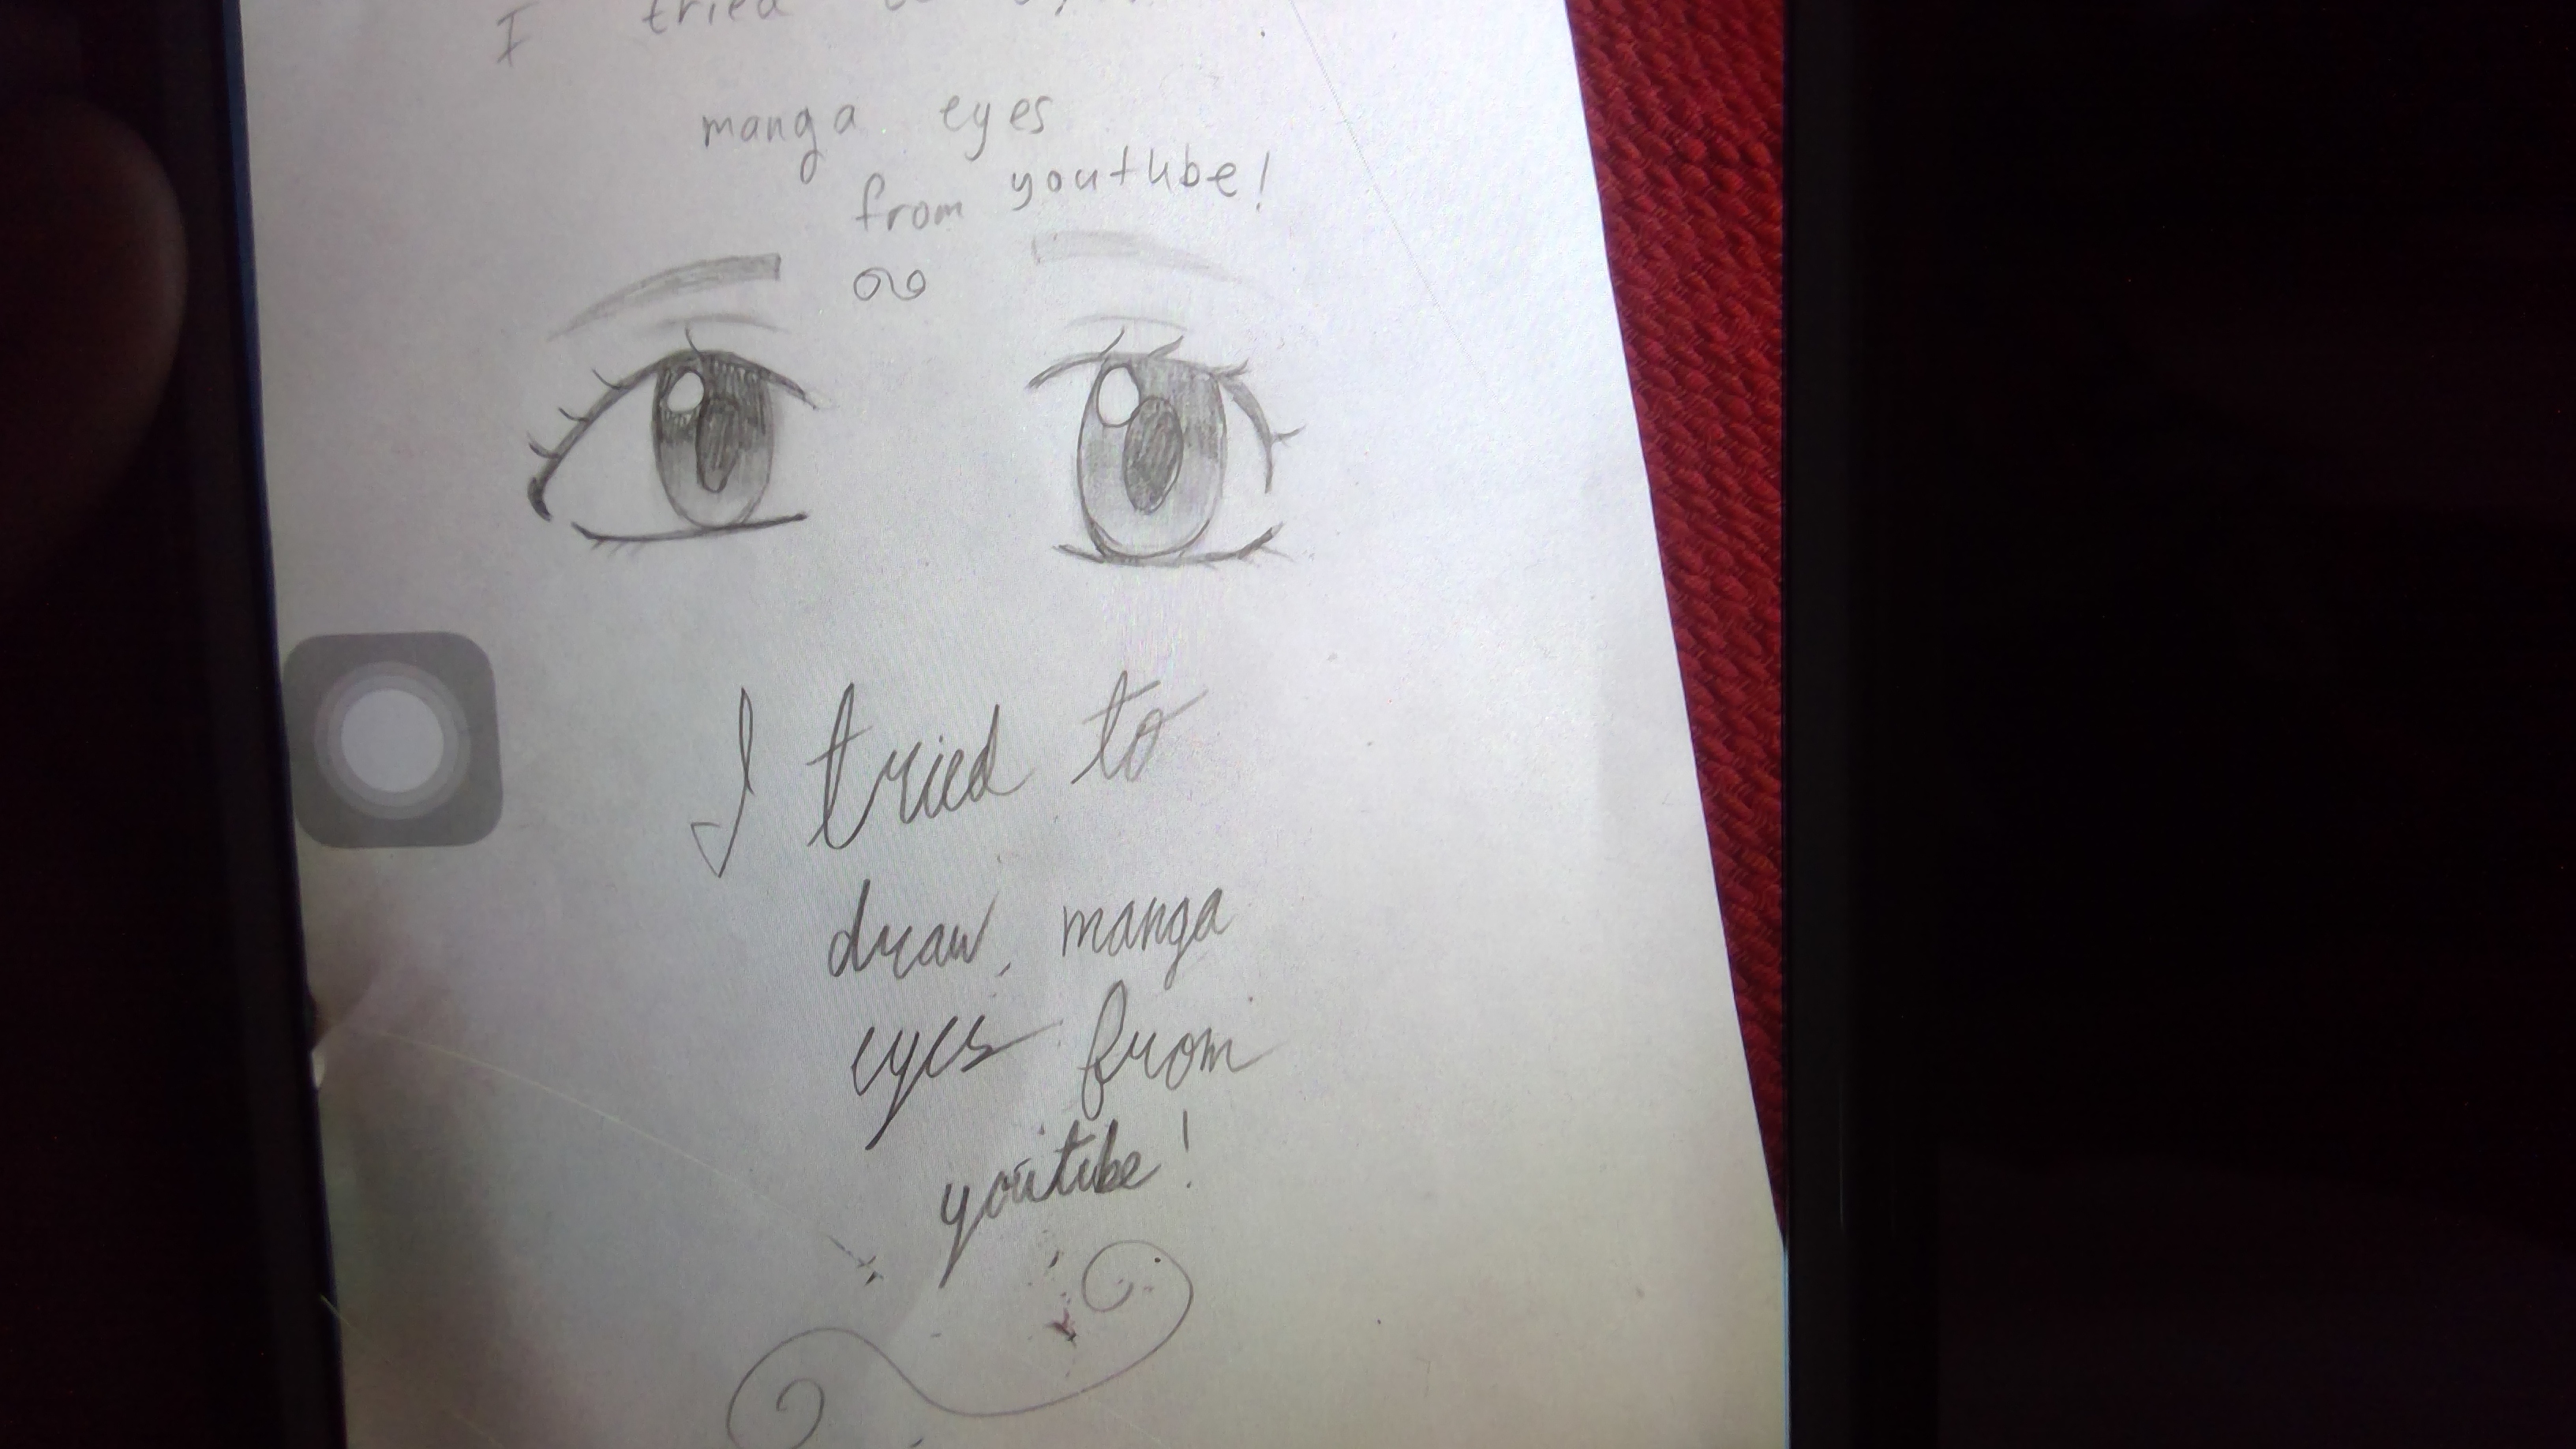 I tried to
manga eyes
from youtube!
I tried to
draw manga
eyes from
youtube!